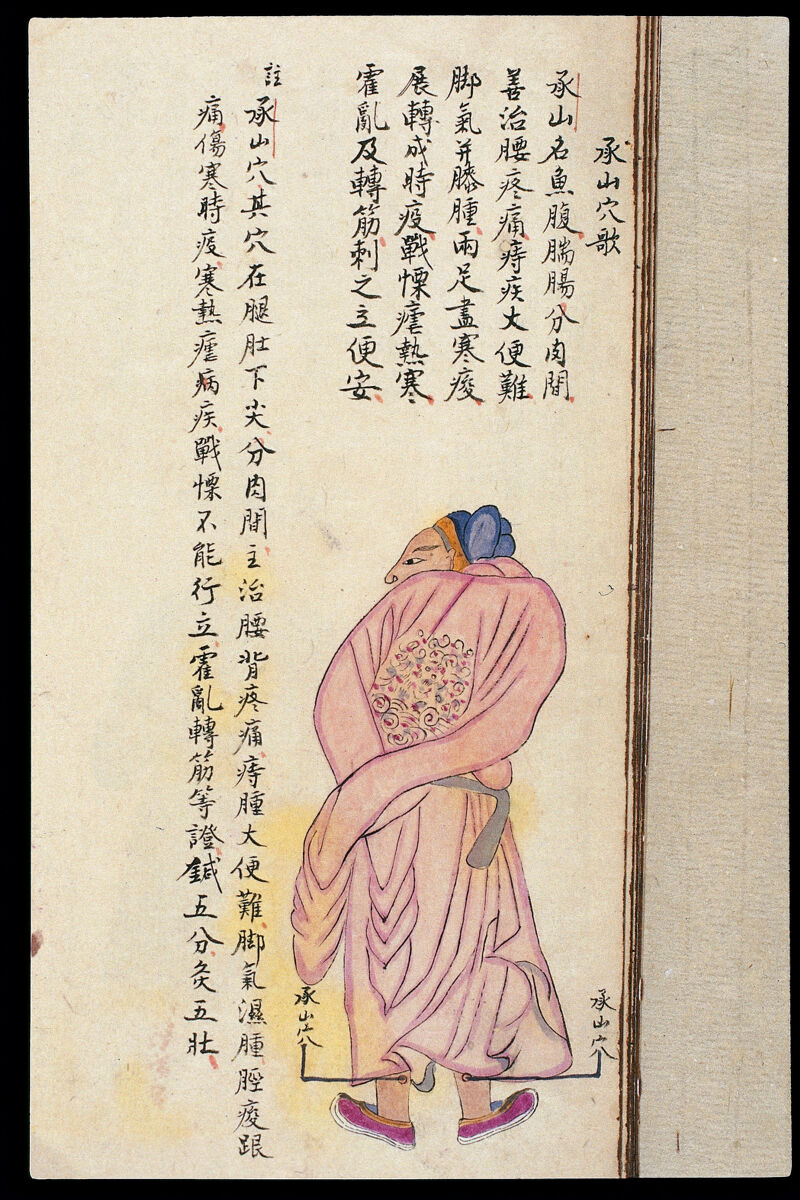 承山穴歌
承山名魚腹腨腸分肉間
善治腰疼痛痔疾大便難
脚氣并膝腫兩足盡寒痠
展轉成時疫戰慄瘧熱寒
霍亂及轉筋刺之立便安
註承山穴其穴在腿肚下尖分肉間主治腰背疼痛痔腫大便難脚氣濕腫脛痠跟
痛傷寒時疫寒熱瘧病疾戰慄不能行立霍亂轉筋等證鍼五分灸五壯
承山穴
承山穴